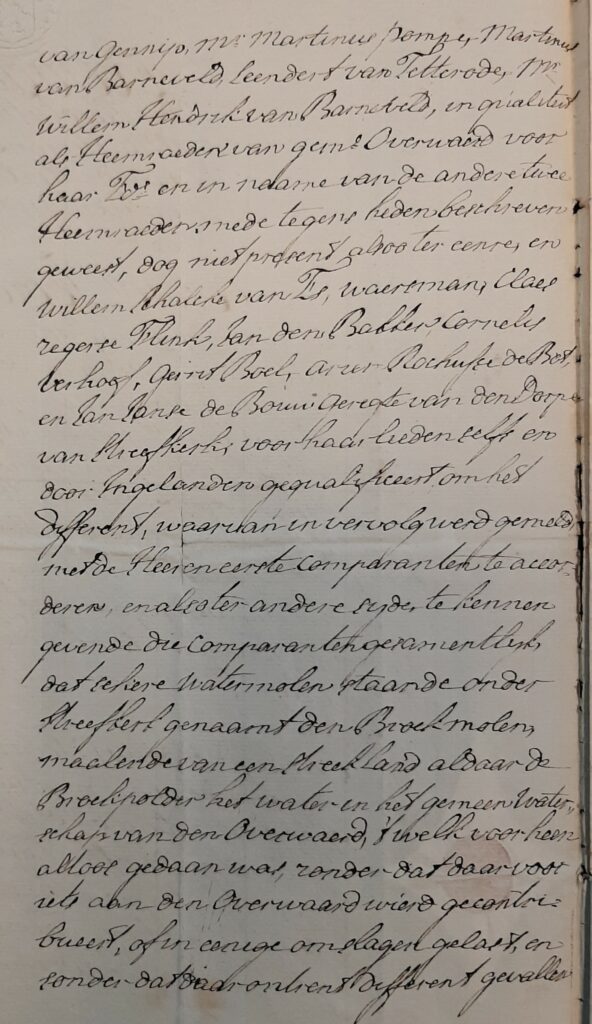 van Gennip, Mr Martinus Pompe, Martinus
van Barneveld, Leendert van Tetterode, Mr
Willem Hendrik van Barneveld, in qualiteit
als Heemraeden van gemt Overwaerd voor
haar Ed.s en in naame van de andere twee
Heemraeden mede tegens heden beschreven
geweest, dog niet present alsoo ter eenre, en
Willem Schalcke van Es, waersman, Claes
regerse Flink, Jan den Bakker, Cornelis
verhoof, Gerrit Boel, Arien Rochusse de Bot,
en Jan Janse de Bouw Geregte van den Dorpe
van Streefkerk, voor haar lieden selfs en
door Ingelanden gequalificeert om het
different, waarvan in vervolg werd gemeld,
met de Heeren eerste Comparanten te accor-
deren, en also ter andere syde, te kennen
gevende die Comparanten gesamentlijk,
dat sekere Watermolen staande onder
Streefkerk genaamt den Broekmolen,
maalende van een streek land aldaar de
Broekpolder het water in het gemeen Water-
schap van den Overwaerd, 't welk voor heen
altoos gedaan was, zonder dat daar voor
iets aan den Overwaard wierd gecontri-
bueert, of in eenige omslagen gelast, en
sonder dat daar ontrent different gevallen